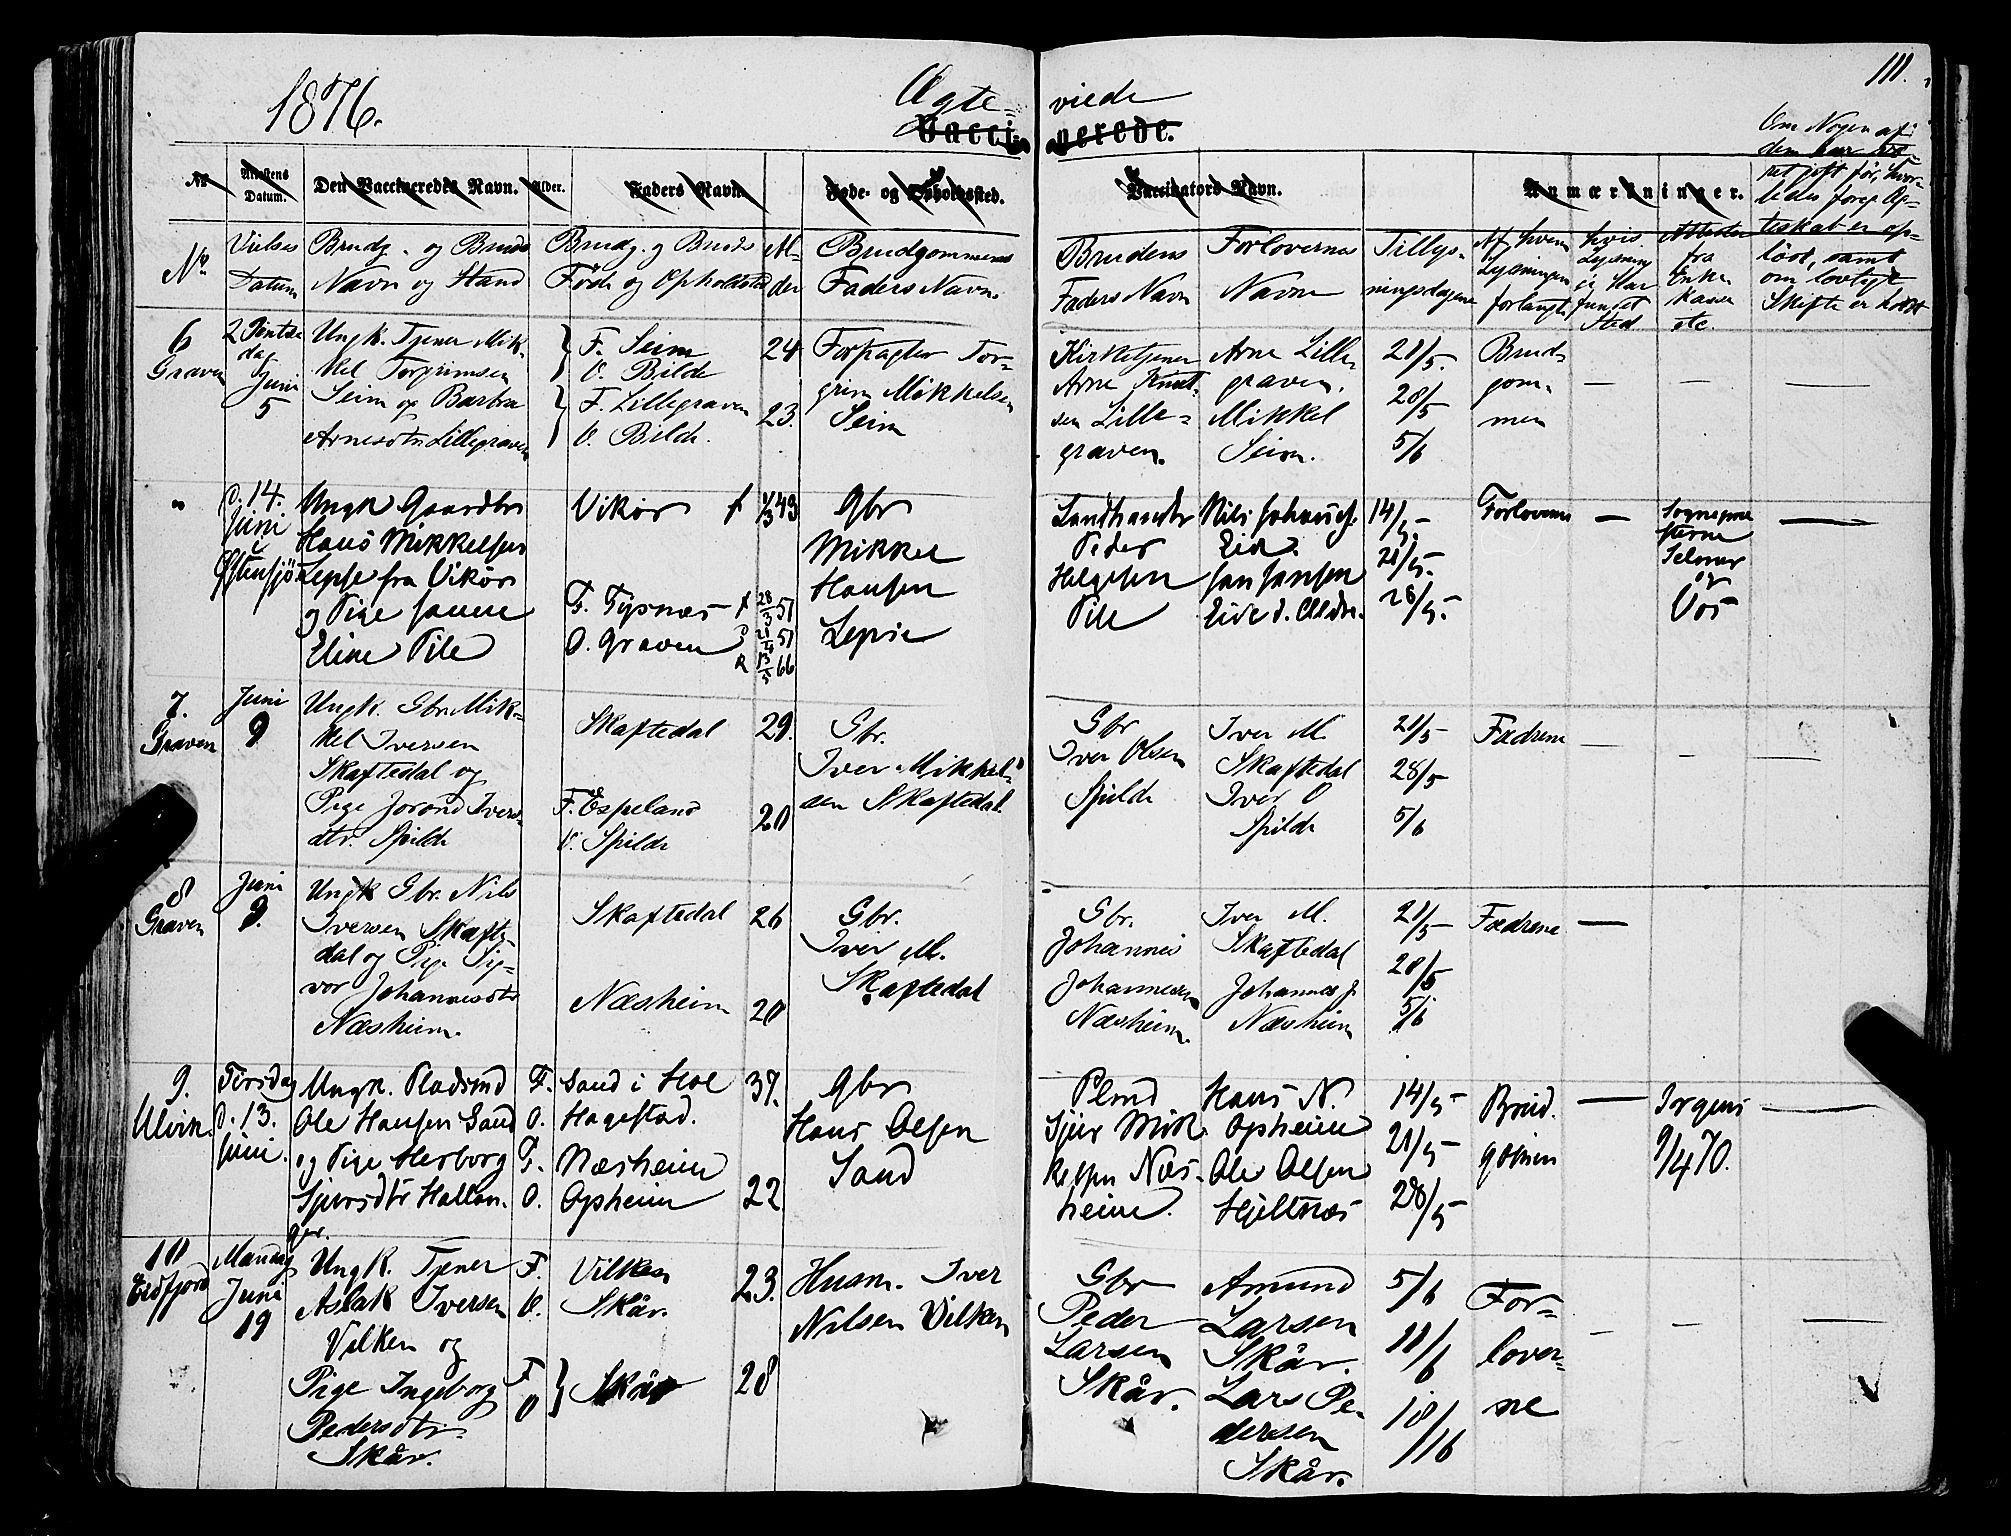 1876.
Ægte-
viede
111.
Vacci-
nerede.
Om Nogen af
dem har
været gift før, hvor-
ledes foreg. Æg-
teskab er op-
løst, samt
om lovligt
Skifte er holdt
No
Attestens
Datum.
Den Vaccineredes Navn.
Alder.
Faders Navn.
Føde- og Opholdssted.
Vaccinators Navn.
Anmærkninger.
No.
Vielses
Datum
Brudg. og Bruds
Navn og Stand
Brudg. og Bruds
Føde og Opholdsted
Al-
der
Brudgommens
Faders Navn.
Brudens
Faders Navn
Forlovernes
Navne
Tillys-
ningsdagene
Af hvem
Lysningen
forlangt.
Hvis
Lysning
ei har
fundet
Sted
Attester
fra
Enke
kasse
etc.
6
Graven
2 Pintse
dag
Juni
5
Ungk. Tjener Mik-
kel Torgrimsen
Seim og Barbra
Arnesdtr Lillegraven
F. Seim
O. Bilde
F. Lillegraven
O. Bilde.
24
23.
Forpagter Tor-
grim Mikkelsen
Seim
Kirketjener
Arne Knut-
sen Lille-
graven.
Arne Lille
graven.
Mikkel
Seim.
21/5.
28/5
5/6
Brud
gom-
men
— — —
"
d. 14.
Juni
Østensjö
Ungk Gaardbr
Hans Mikkelsen
Lepse fra Vikör
og Pige Janne
Eline Pile
Vikör f
F. Tysnæs f
O. Graven
1/3 43
28/3 51
51
13/5 66
Gbr
Mikkel
Hansen
Lepsie
Landhandler
Peder
Helgesen
Pile
Nils Johannes.
Eide.
Jan Jansen
Eide d. Ældr.
14/5.
21/5.
28/5.
Forloverne
—
Sognepræ
sterne
Selmer
og
Vos
—
7.
Graven
Juni
9
Ungk. Gbr. Mik-
kel Iversen
Skaftedal og
Pige Jorand Ivers-
dtr. Spilde
Skaftedal
F. Espeland
O. Spilde
29.
20
Gbr.
Iver Mikkel-
sen Skaftedal
Gbr
Iver Olsen
Spilde
Iver M
Skaftedal
Iver O
Spilde
21/5
28/5
5/6
Fædrene
— — —
8
Graven
Juni
9.
Ungk Gbr. Nils
Iversen Skafte-
dal og Pige Sy-
vor Johannesdtr
Næsheim.
Skaftedal
Næsheim
26
20
Gbr.
Iver M.
Skaftedal
Gbr.
Johannes
Johannessen
Næsheim.
Iver M.
Skaftedal
Johannes J.
Næsheim
21/5
28/5
5/6
Fædrene
—
9.
Ulvik.
Tirsdag
d. 13.
Juni.
Ungk. Pladsmd
Ole Hansen Sand
og Pige Herborg
Sjursdtr Hallan-
ger.
F. Sand i Hol
O. Hagestad.
F. Næsheim
O. Opheim
37.
22
Gbr
Hans Olsen
Sand
Plmd
Sjur Mik
kelsen Næs-
heim.
Hans N.
Opheim
Ole Olsen
Hjeltnæs
14/5
21/5
28/5
Brud.
gomen
—
Irgens
9/4 70.
—
10
Eidfjord
Mandag
Juni
19
Ungk. Tjener
Aslak Iversen
Vilken og
Pige Ingeborg
Pedersdtr
Skår.
F. Vilken
O. Skår.
F
O
Skår
23.
28
Husm. Iver
Nilsen Vilken
Gbr
Peder
Larsen
Skår.
Amund
Larsen
Skår.
Lars Pe-
dersen
Skår.
5/6
11/6
18/6
For-
lover-
ne
— — —